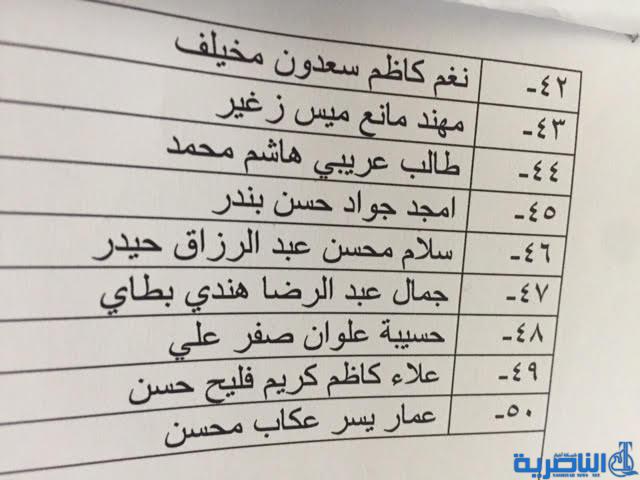 ٤٢- نغم كاظم سعدون مخيلف
٤٣- مهند مانع ميس زغير
٤٤- طالب عريبي هاشم محمد
٤٥- امجد جواد حسن بندر
٤٦- سلام محسن عبد الرزاق حيدر
٤٧- جمال عبد الرضا هندي بطاي
٤٨- حسيبة علوان صفر علي
٤٩- علاء كاظم كريم فليح حسن
٥٠- عمار يسر عكاب محسن
شبكة أخبار
الناصرية